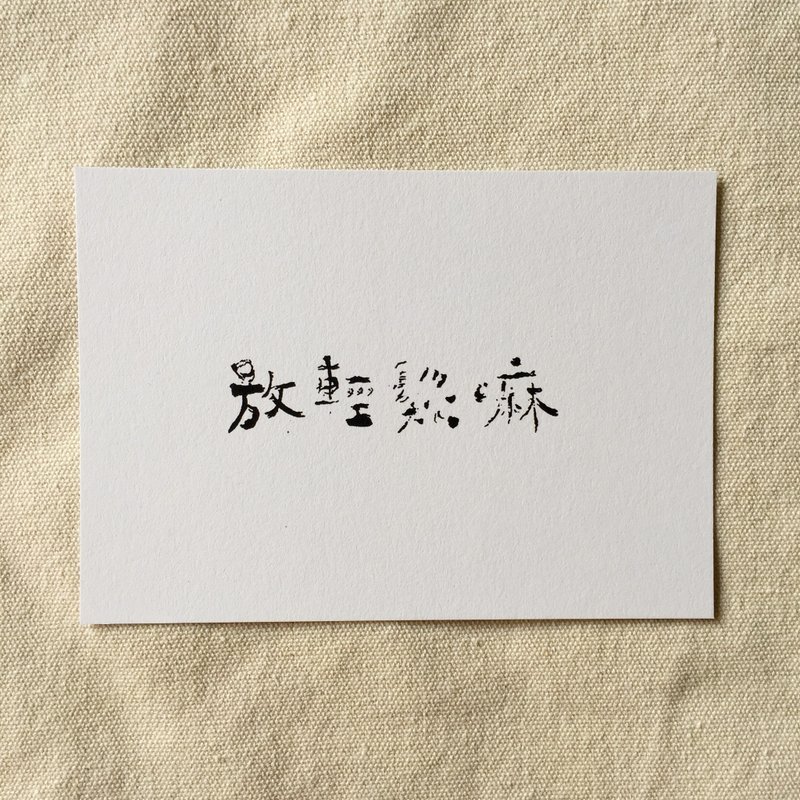 放輕鬆嘛